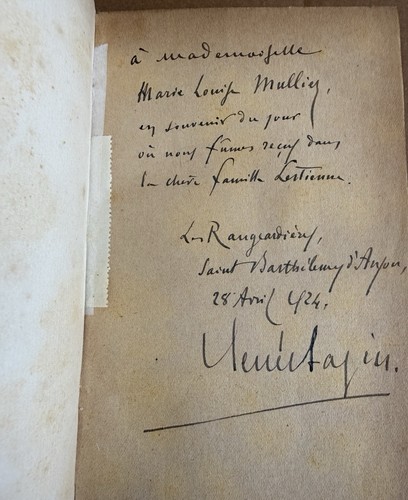 à Mademoiselle
Marie Louise Mulliez,
en souvenir du jour
où nous fûmes reçus dans
la chère famille Lestienne.
Les Rangeardières,
Saint Barthélemy d'Anjou,
28 Avril 1924.
René Bazin.